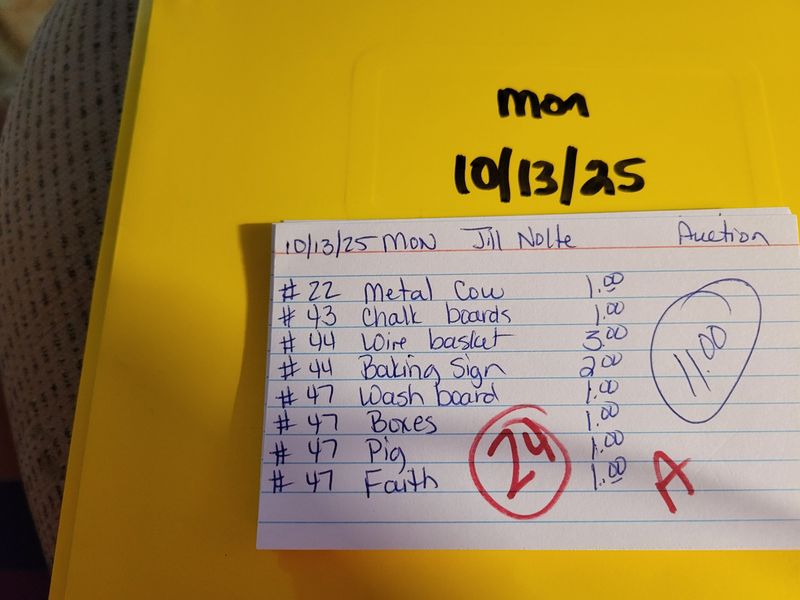 mon
10/13/25
10/13/25 MON Jill Nolte Auction
# 22 Metal Cow 1.00
# 43 Chalk boards 1.00
# 44 Wire basket 3.00
# 44 Baking Sign 2.00
# 47 Wash board 1.00
# 47 Boxes 1.00
# 47 Pig 1.00
# 47 Faith 1.00
11.00
24
A